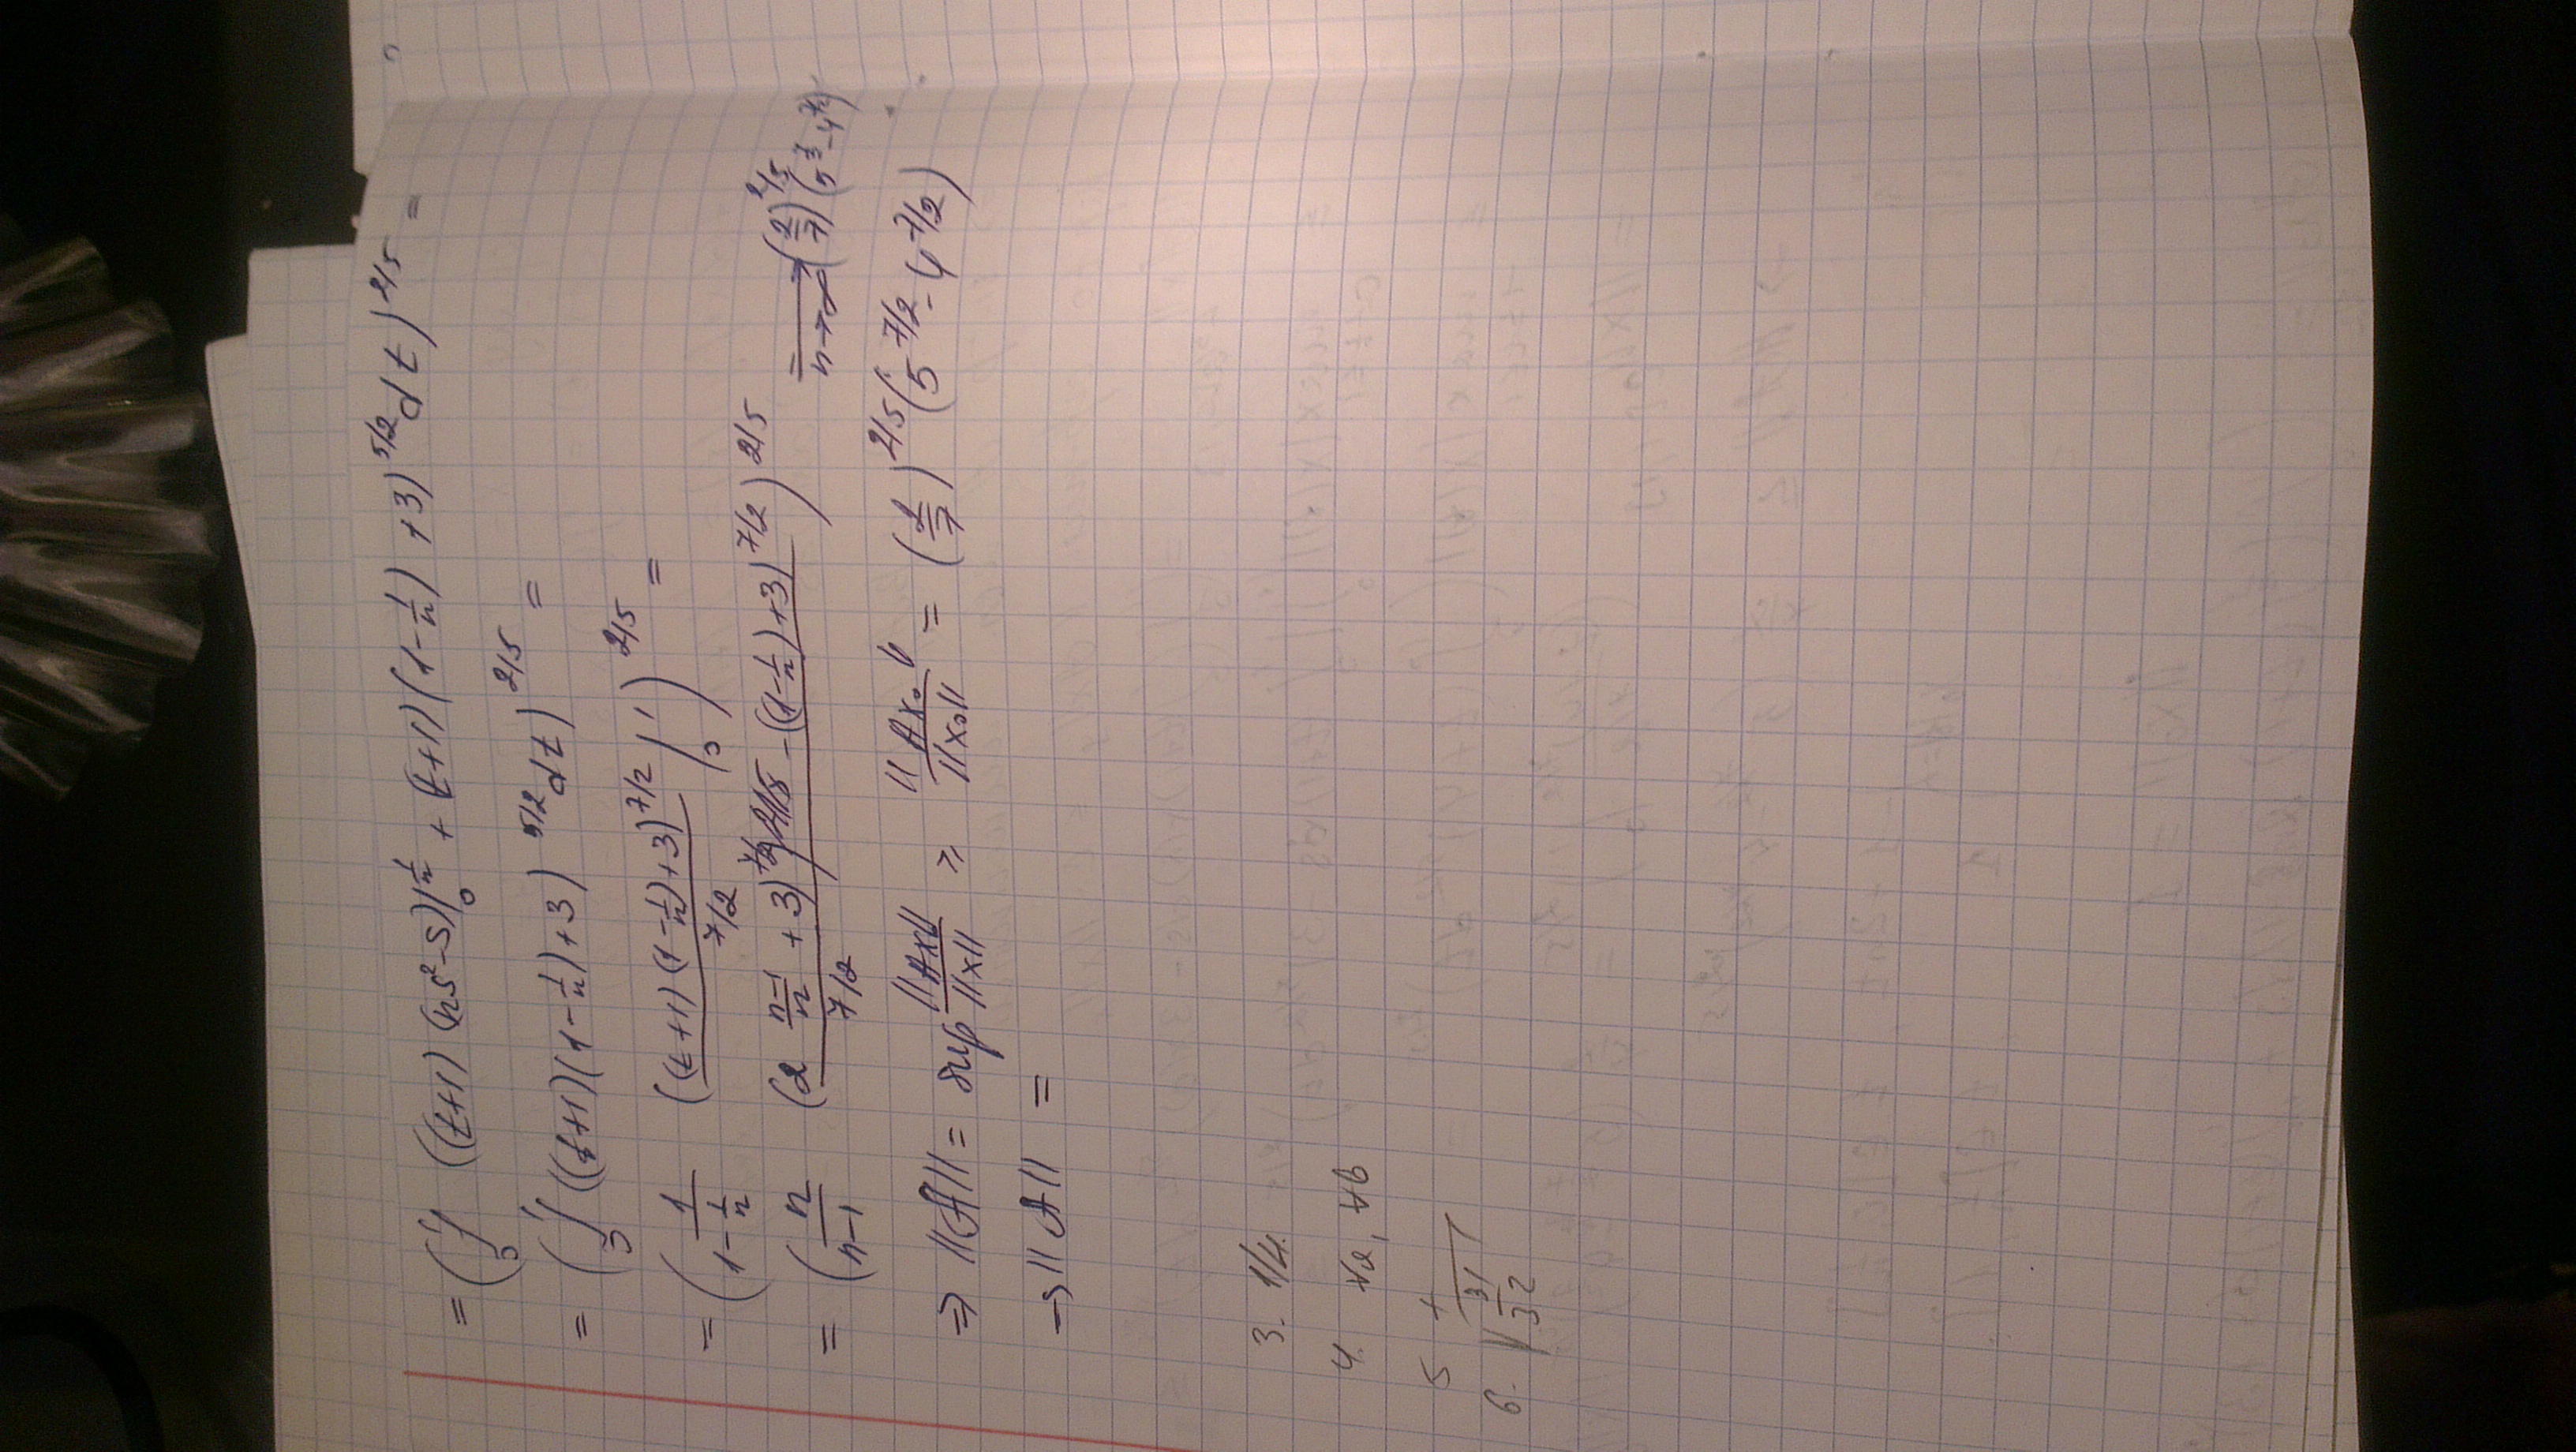 = (∫₀¹ ((t+1) (ns²-s)|₀^{1/n} + (t+1)(1-1/n) +3)^{5/2} dt)^{2/5} =
= (∫₀¹ ((t+1)(1-1/n)+3)^{5/2} dt)^{2/5} =
= (1/(1-1/n) ((t+1)(1-1/n)+3)^{7/2}/(7/2) |₀¹)^{2/5} =
= (n/(n-1) (2 (n-1)/n +3)^{7/2} - ((1-1/n)+3)^{7/2}/(7/2))^{2/5} = n→∞ (2/7)^{2/5}
⇒ ||A|| = sup ||Ax||/||x|| > ||Ax₀||/||x₀|| = (2/7)^{2/5} (5^{7/2} - 4^{7/2})
→ ||A|| =
3. 1/4.
4. ∀a, ∀b
5 +
6. √(31/32)